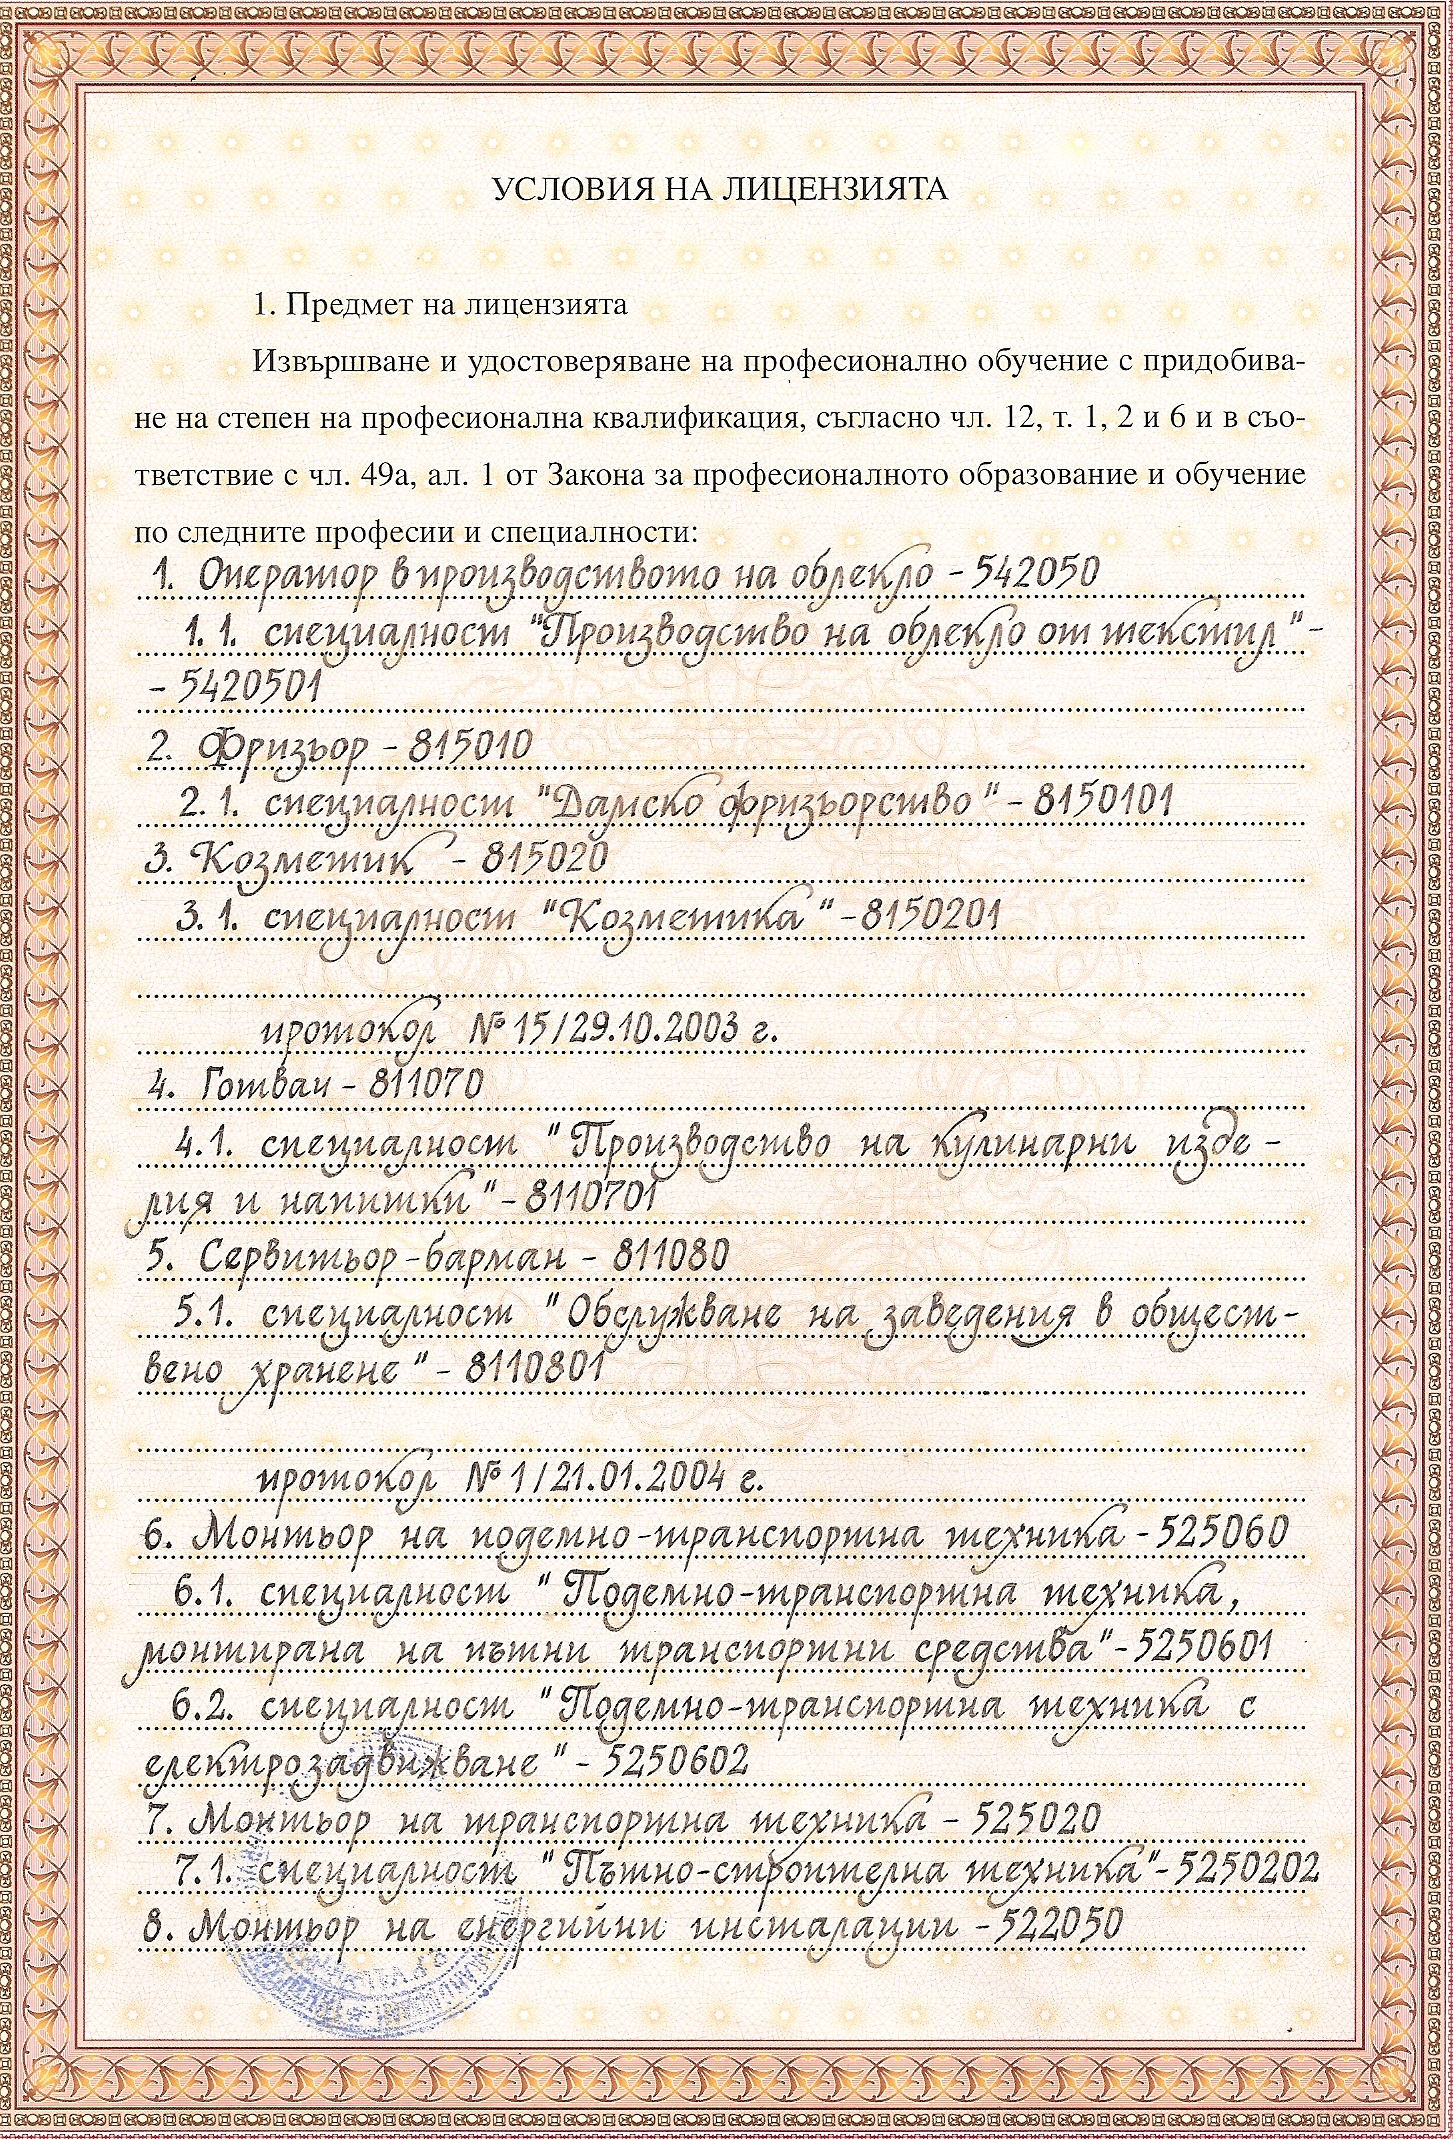 УСЛОВИЯ НА ЛИЦЕНЗИЯТА
1. Предмет на лицензията
Извършване и удостоверяване на професионално обучение с придобива-
не на степен на професионална квалификация, съгласно чл. 12, т. 1, 2 и 6 и в съо-
тветствие с чл. 49а, ал. 1 от Закона за професионалното образование и обучение
по следните професии и специалности:
1. Оператор в производството на облекло - 542050
1.1. специалност "Производство на облекло от текстил" -
- 5420501
2. Фризьор - 815010
2.1. специалност "Дамско фризьорство" - 8150101
3. Козметик - 815020
3.1. специалност "Козметика" - 8150201
протокол № 15/29.10.2003 г.
4. Готвач - 811070
4.1. специалност "Производство на кулинарни изде-
лия и напитки" - 8110701
5. Сервитьор-барман - 811080
5.1. специалност "Обслужване на заведения в общест-
вено хранене" - 8110801
протокол № 1/21.01.2004 г.
6. Монтьор на подемно-транспортна техника - 525060
6.1. специалност "Подемно-транспортна техника,
монтирана на пътни транспортни средства" - 5250601
6.2. специалност "Подемно-транспортна техника с
електрозадвижване" - 5250602
7. Монтьор на транспортна техника - 525020
7.1. специалност "Пътно-строителна техника" - 5250202
8. Монтьор на енергийни инсталации - 522050